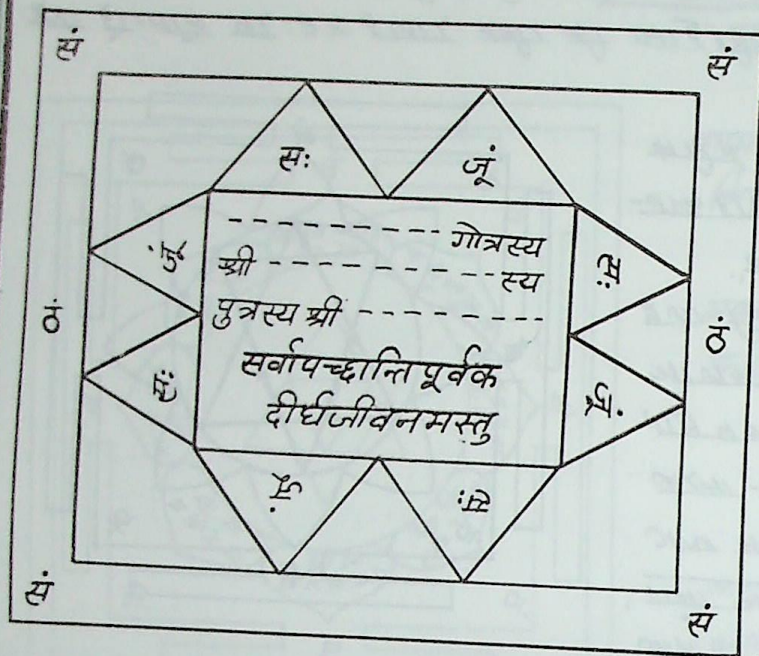 सं सं
सः जूं
---------- गोत्रस्य
श्री ---------- स्य
पुत्रस्य श्री --------
सर्वापच्छान्ति पूर्वक
दीर्घजीवनमस्तु
जूं सः
ठं ठं
सः जूं
जूं सः
सं सं